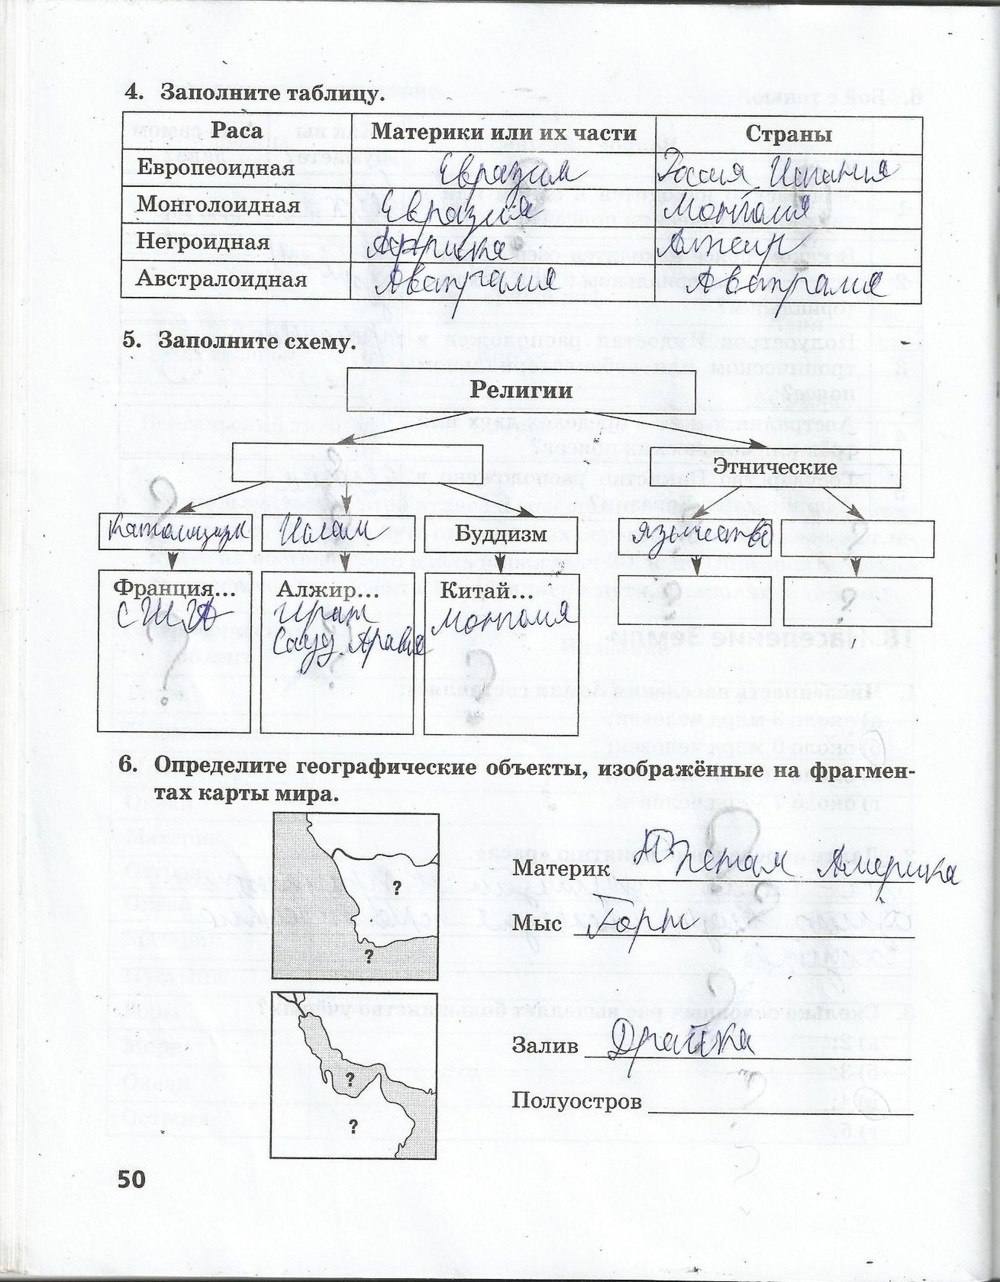 4. Заполните таблицу.
Раса Материки или их части Страны
Европеоидная Евразия Россия, Испания
Монголоидная Евразия Монголия
Негроидная Африка Алжир
Австралоидная Австралия Австралия
5. Заполните схему.
Религии
Этнические
Католицизм Ислам Буддизм язычество ?
Франция... Алжир... Китай...
США Иран Монголия
Сауд. Аравия
6. Определите географические объекты, изображённые на фрагмен-
тах карты мира.
?
?
Материк Америка
Мыс Горн
?
?
Залив
Полуостров
50